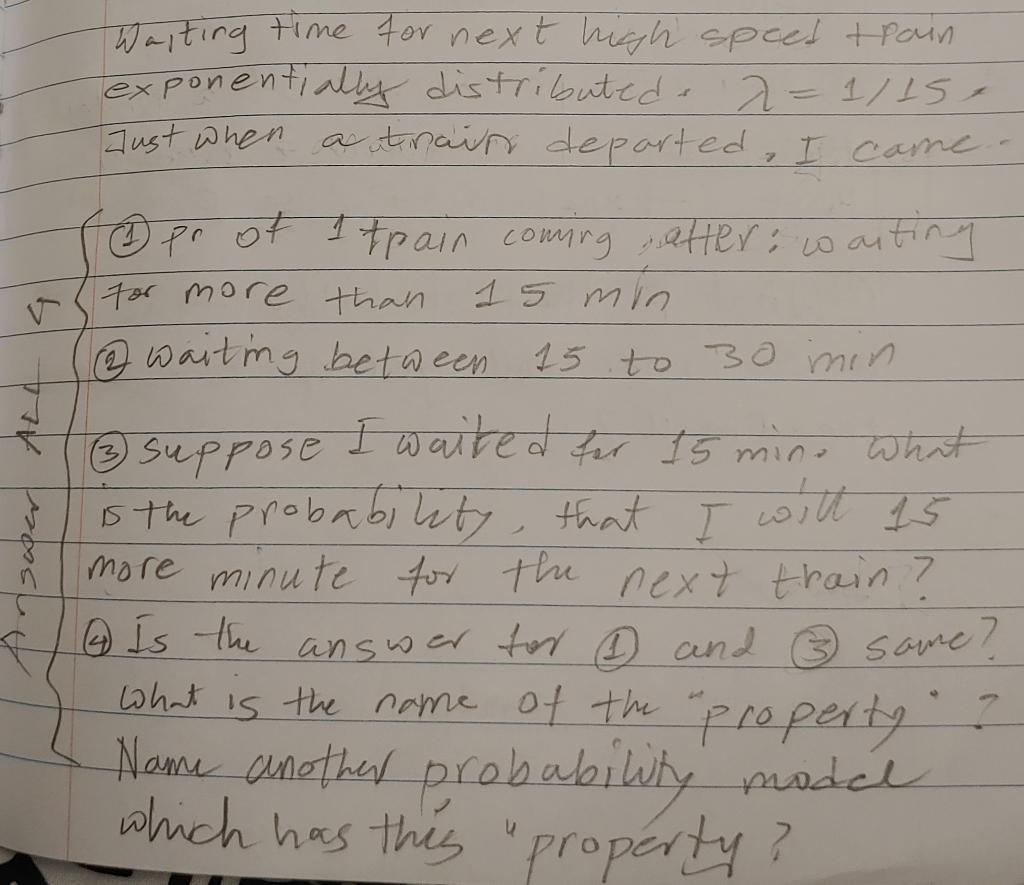 Waiting time for next high speed train
exponentially distributed. λ = 1/15.
Just when a train departed, I came.
① pr of 1 train coming, after: waiting
for more than 15 min
② waiting between 15 to 30 min
③ suppose I waited for 15 min. What
is the probability, that I will 15
more minute for the next train?
④ Is the answer for ① and ③ same?
What is the name of the "property" ?
Name another probability model
which has this "property?
Answer ALL 4